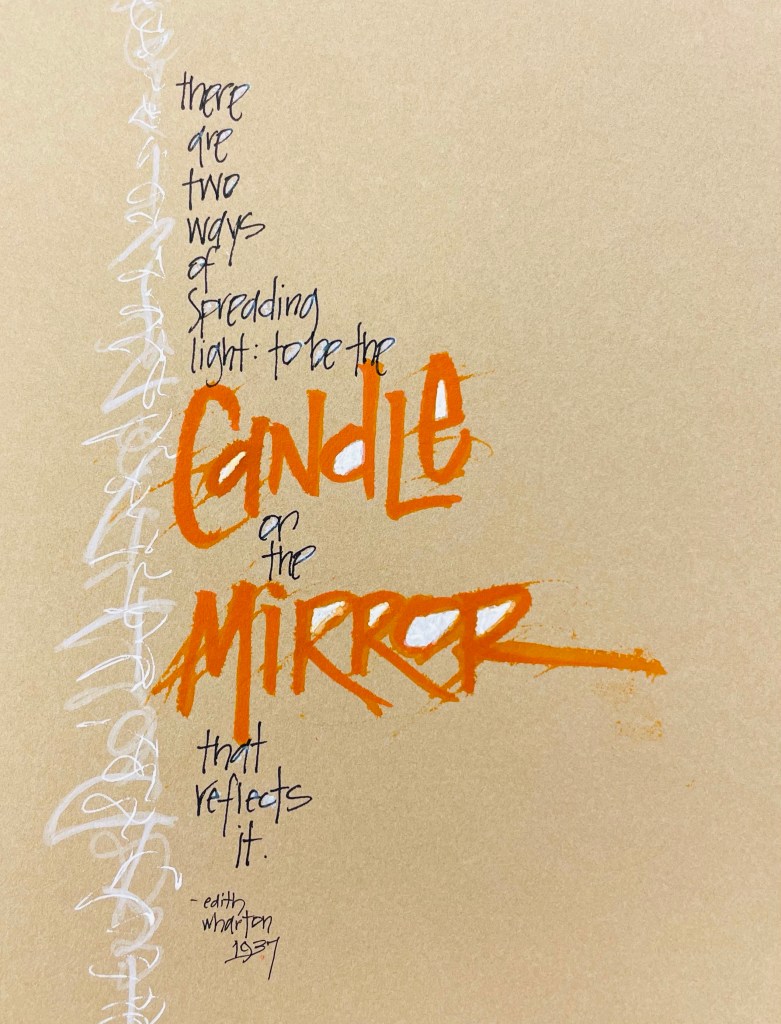 there
are
two
ways
of
spreading
light: to be the
CaNdLe
or
the
MiRROR
that
reflects
it.
- edith
wharton
1937